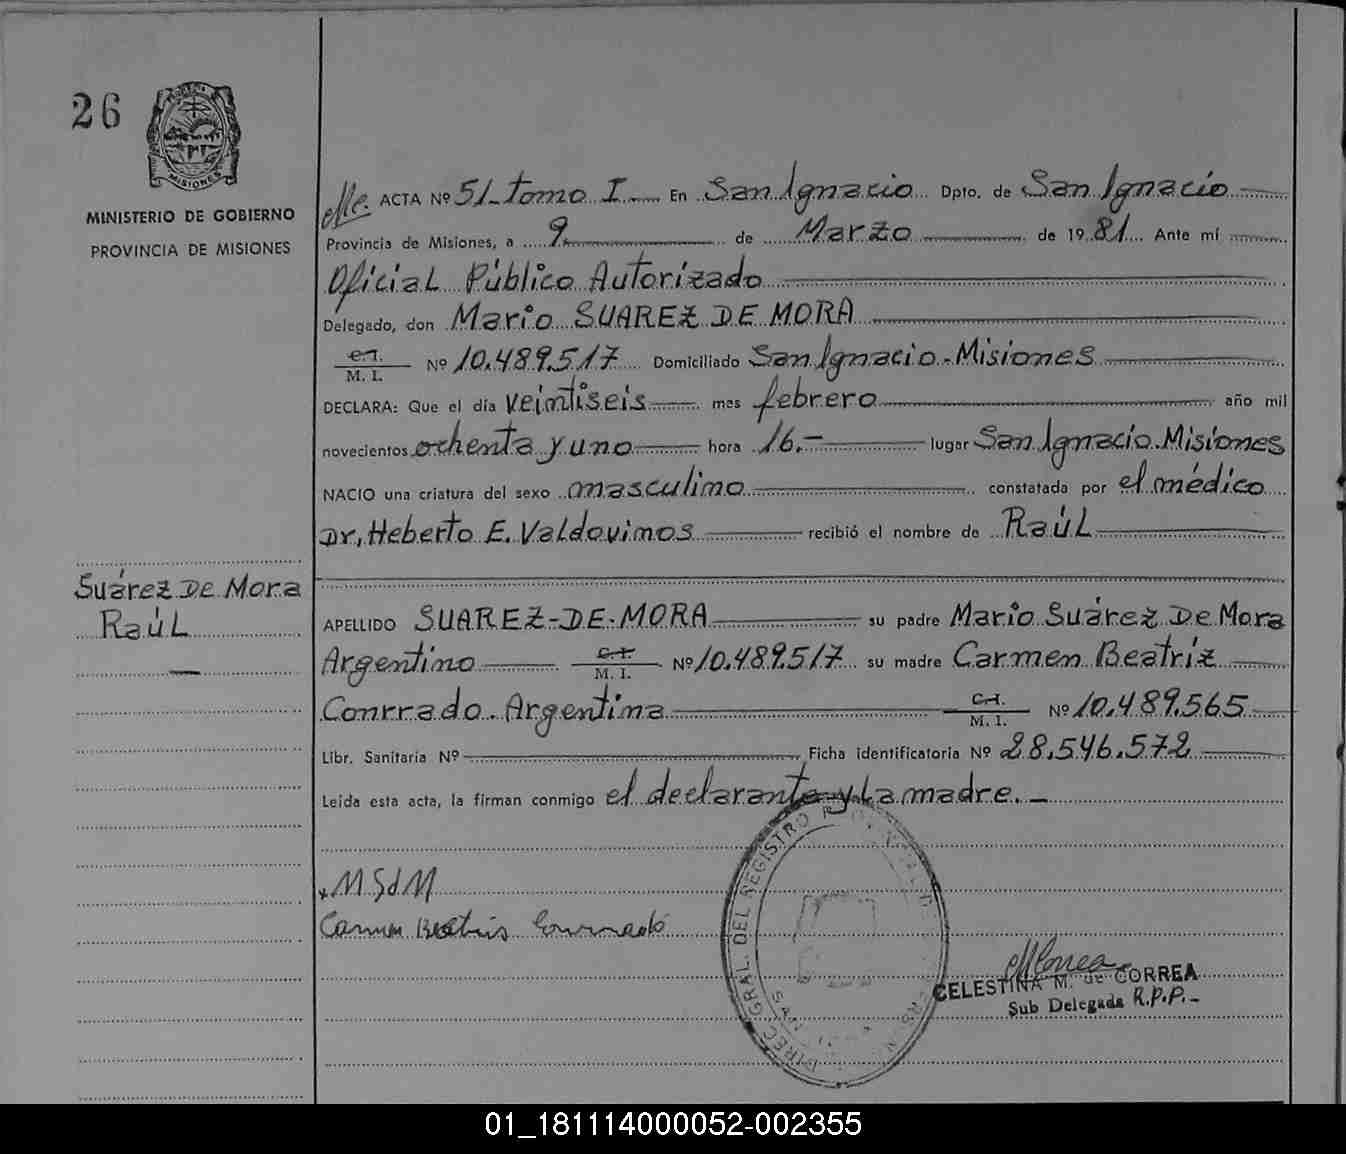 26
MISIONES
MINISTERIO DE GOBIERNO
PROVINCIA DE MISIONES
ACTA Nº 51_ tomo I. En San Ignacio Dpto. de San Ignacio
Provincia de Misiones, a 9. de Marzo de 1981 Ante mí
Oficial Público Autorizado
Delegado, don Mario SUAREZ DE MORA
C.I. M. I. Nº 10.489.517 Domiciliado San Ignacio - Misiones
DECLARA: Que el día veintiseis mes febrero año mil
novecientos ochenta y uno hora 16.- lugar San Ignacio. Misiones
NACIO una criatura del sexo masculino constatada por el médico
Dr, Heberto E. Valdovinos recibió el nombre de RaúL
Suárez De Mora
RaúL
APELLIDO SUAREZ-DE-MORA su padre Mario Suárez De Mora
Argentino C.I. M. I. Nº 10.489.517 su madre Carmen Beatriz
Conrrado. Argentina C.I. M. I. Nº 10.489.565
Libr. Sanitaria Nº Ficha identificatoria Nº 28.546.572
Leída esta acta, la firman conmigo el declarante y La madre. _
DIREC. GRAL. DEL REGISTRO
SAN
MSdM
Carmen Beatris Conrrado
CELESTINA M. de CORREA
Sub Delegada R.P.P.-
01_181114000052-002355